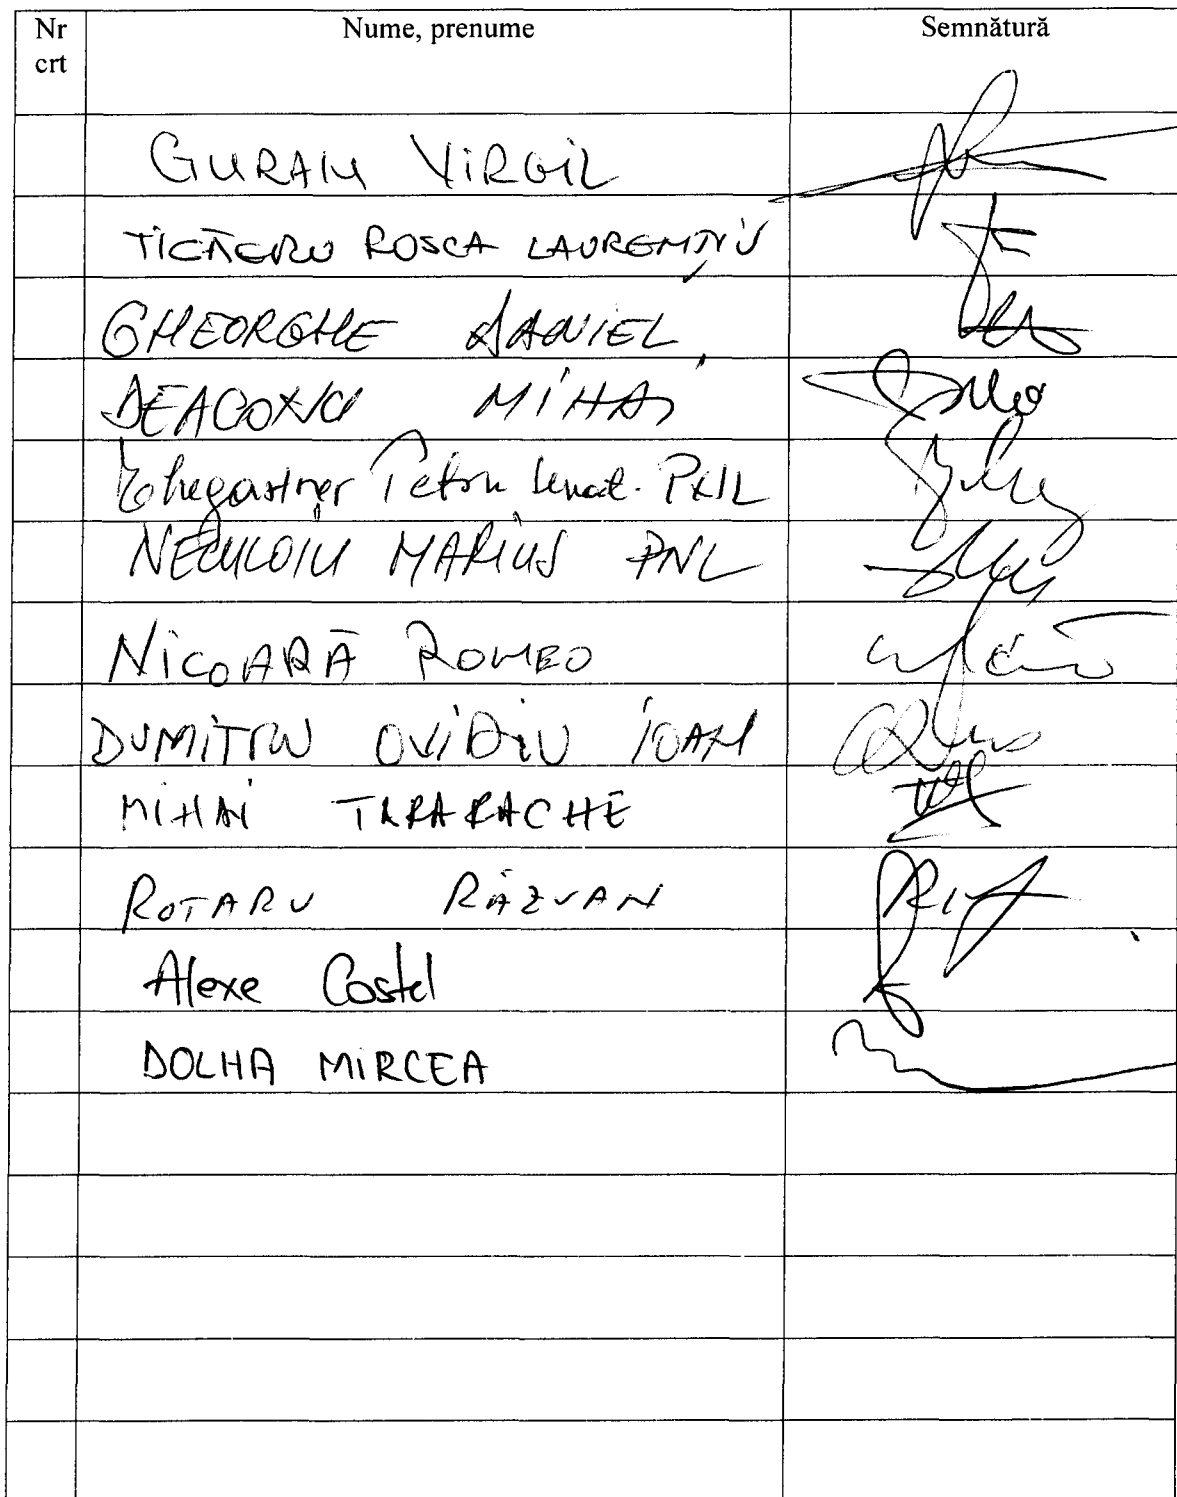 Nr crt Nume, prenume Semnătură
GURAN VIRGIL
ROSCA LAURENȚIU
GHEORGHE DANIEL
DEACONU MIHAI
Petru PNL
NECULOIU MARIUS PNL
NICOARĂ ROMEO
DUMITRU OVIDIU IOAN
MIHAI TARARACHE
ROTARU RĂZVAN
Alexe Costel
DOLHA MIRCEA